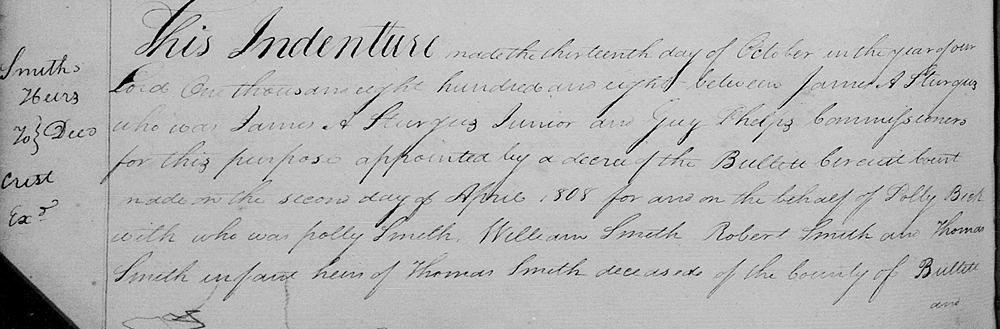 Smiths
Heirs
To } Deed
Crist
Exr
This Indenture made the thirteenth day of October in the year of our
Lord One thousand eight hundred and eight between James A Sturgus
who was James A Sturgus Junior and Guy Phelps Commissioners
for this purpose appointed by a decree of the Bullitt Circuit Court
made on the second day of April 1808 for and on the behalf of Polly Beck
with who was polly Smith, William Smith Robert Smith and Thomas
Smith infant heirs of Thomas Smith deceased of the County of Bullitt
and